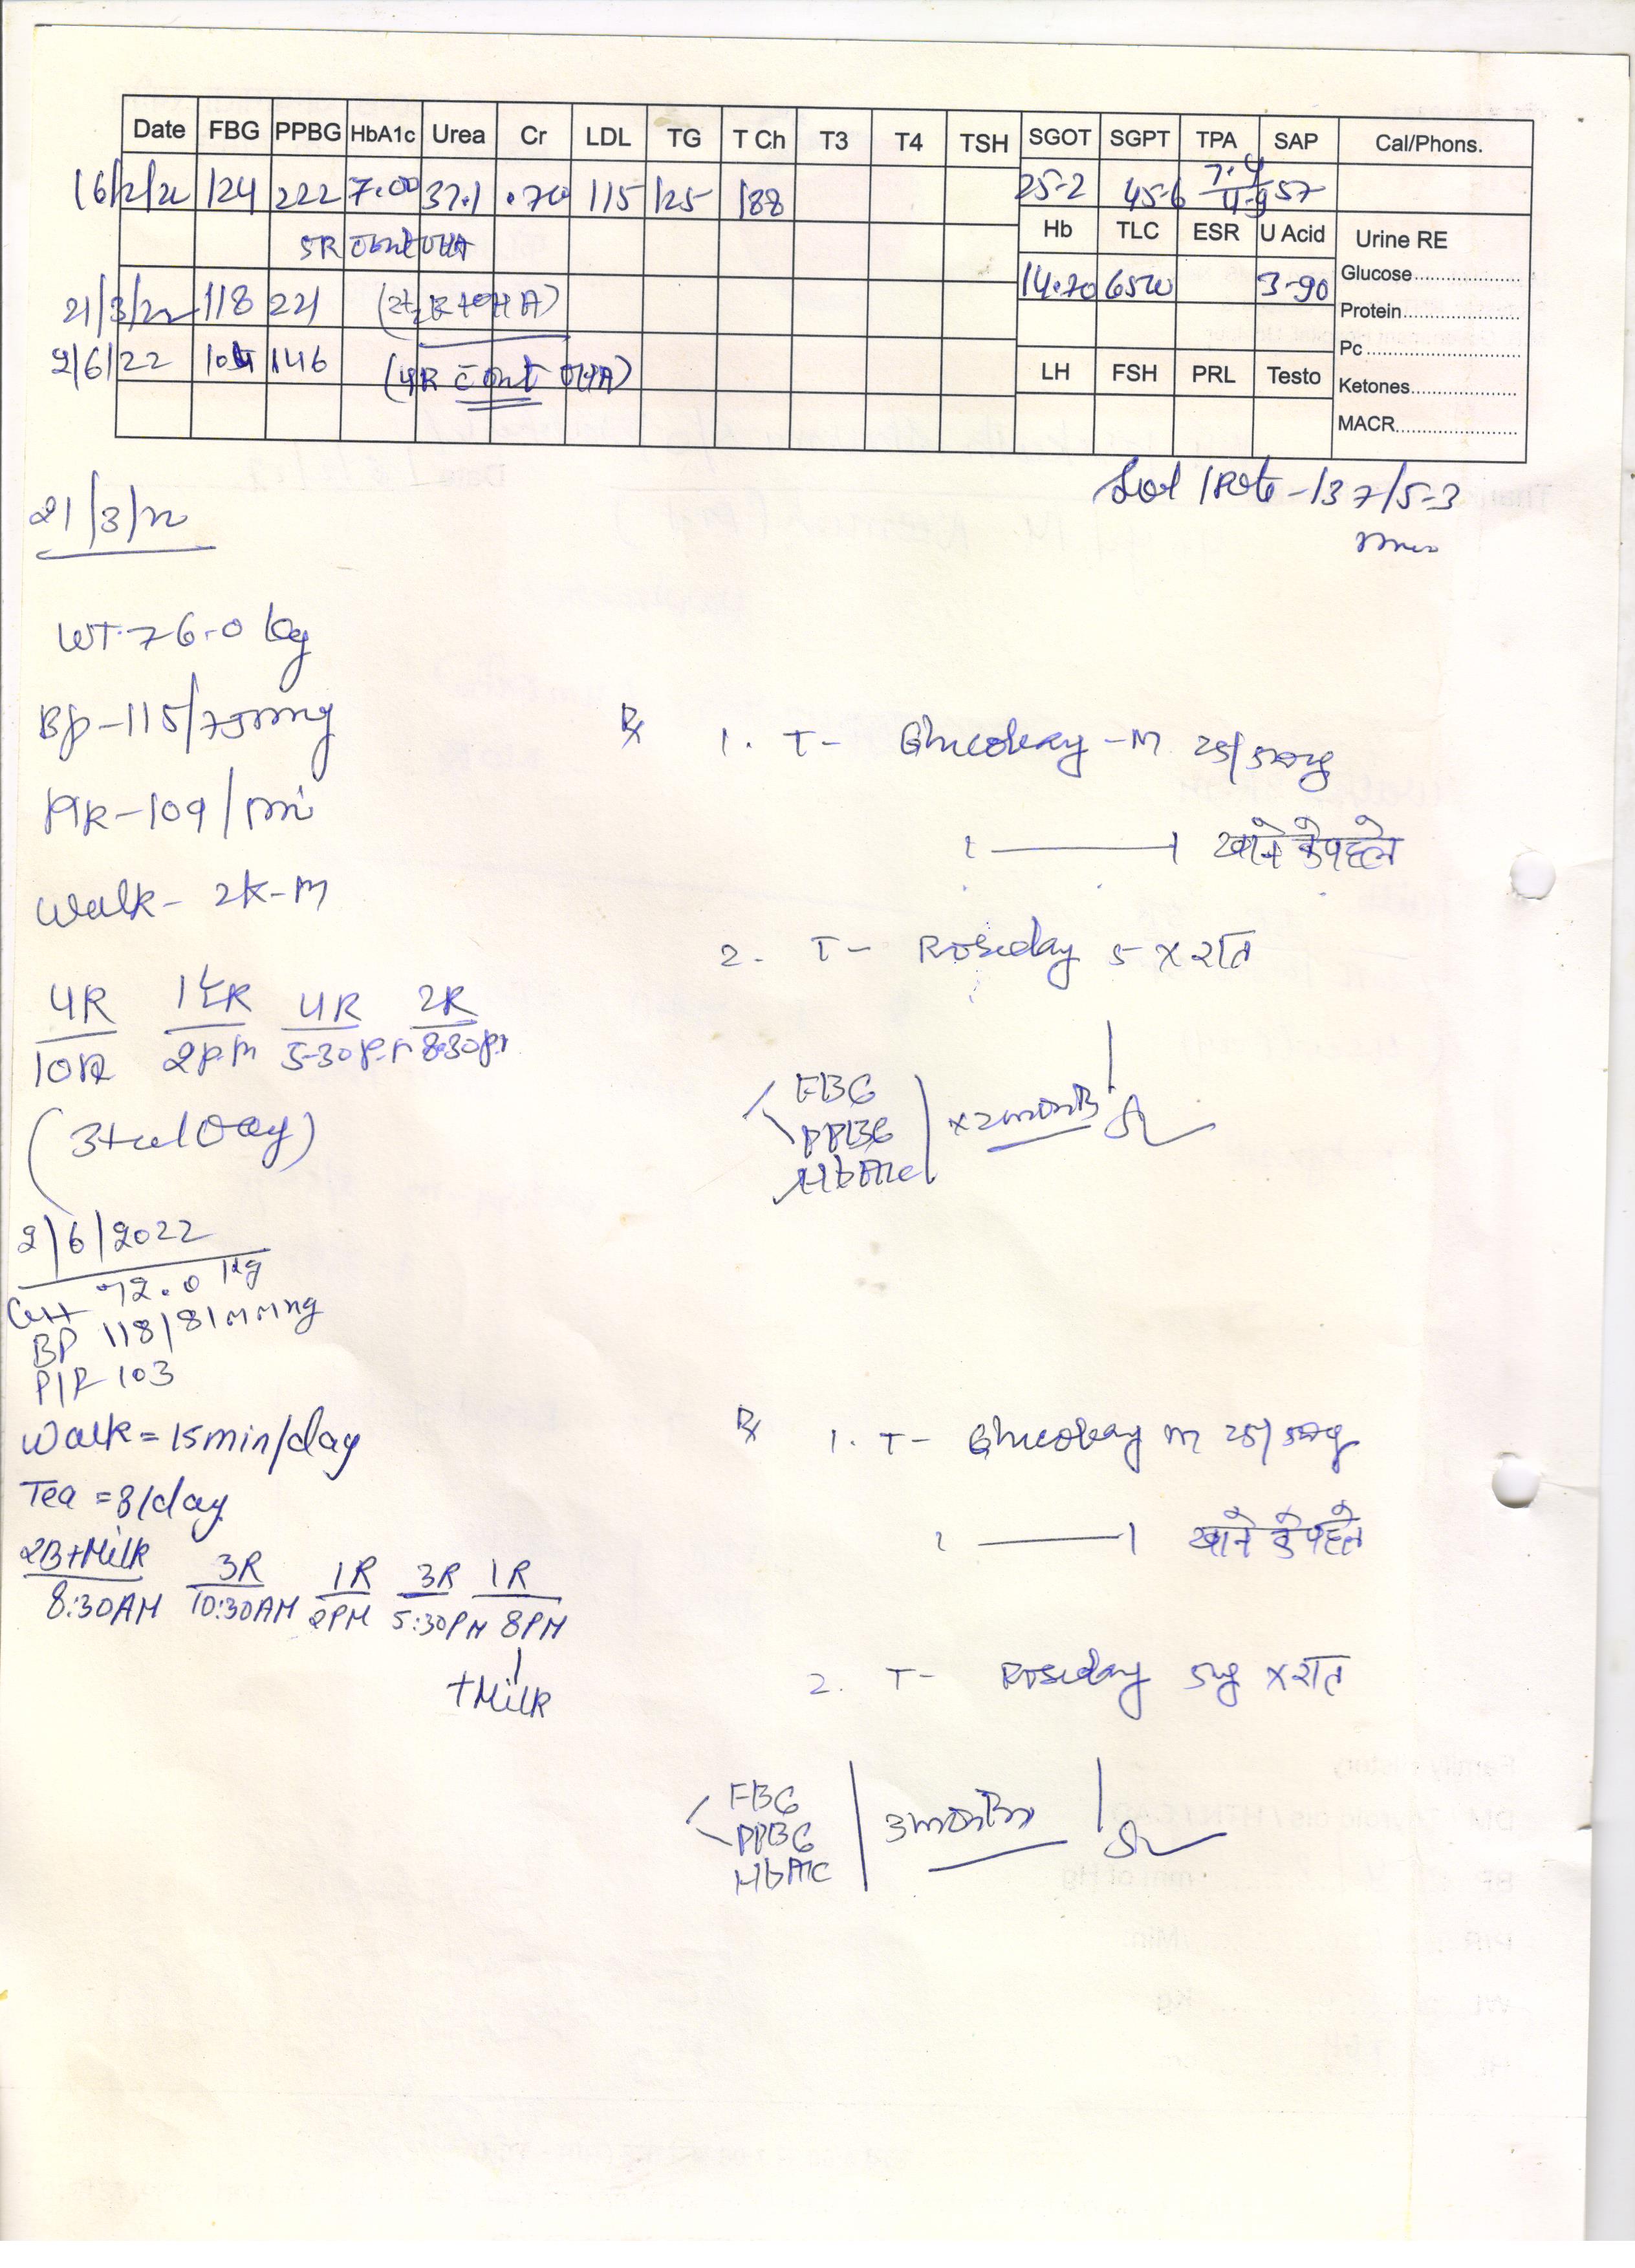 Date FBG PPBG HbA1c Urea Cr LDL TG T Ch T3 T4 TSH SGOT SGPT TPA SAP Cal/Phons.
16/2/22 124 222 7.00 37.1 .70 115 125 188 25.2 45.6 7.4/4.9 57
Hb TLC ESR U Acid Urine RE
5R cont OHA
14.70 6500 3.90 Glucose
21/3/22 118 221 (2½ R + OHA) Protein
Pc
2/6/22 104 146 (4R cont OHA)
LH FSH PRL Testo Ketones
MACR
137/5.3
21/3/22
WT. 76.0 kg
BP - 115/75mmg
PR - 109/mi
Walk - 2K-M
4R 1½R 4R 2R
10A 2P.M 5.30P.M 8.30P.M
Rx 1. T- Glucobay -M 25/500mg
1 —— 1 खाने के पहले
2. T- Roseday 5 x रात
FBG
PPBG x 2 months
HbA1c
2/6/2022
72.0 Kg
BP 118/81mmng
P/R 103
Walk = 15min/day
Tea = 3/day
2B+Milk 3R 1R 3R 1R
8:30AM 10:30AM 2PM 5:30PM 8PM
+Milk
Rx 1. T- Glucobay m 25/500mg
1 —— 1 खाने के पहले
2. T- Roseday 5mg x रात
FBG
PPBG 3 months
HbA1c